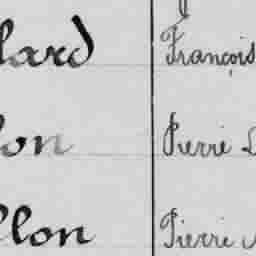 lard François
lon Pierre
llon Pierre